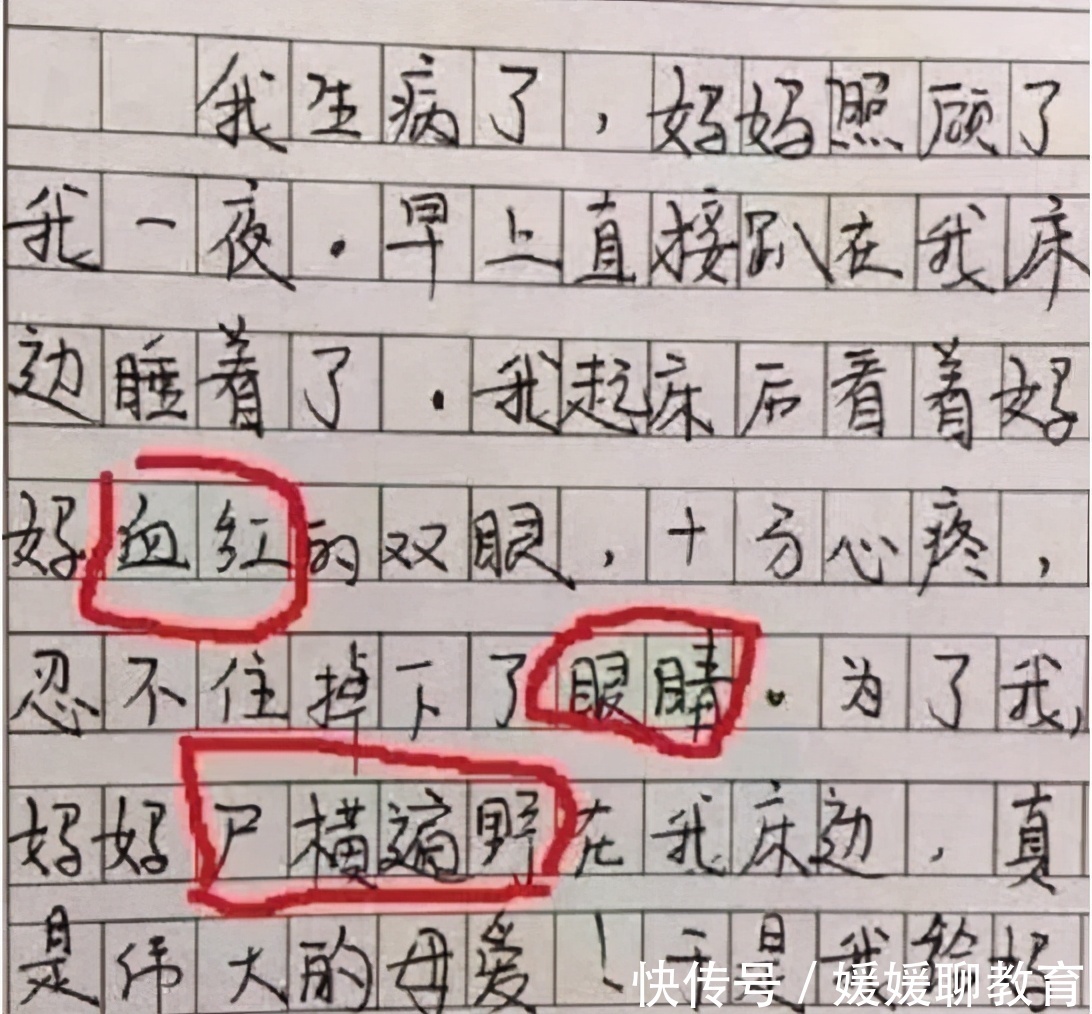 我生病了，妈妈照顾了
我一夜．早上直接趴在我床
边睡着了．我起床后看着妈
妈血红的双眼，十分心疼，
忍不住掉下了眼睛．为了我，
妈妈尸横遍野在我床边，真
是伟大的母爱！于是我给妈
快传号 / 媛媛聊教育